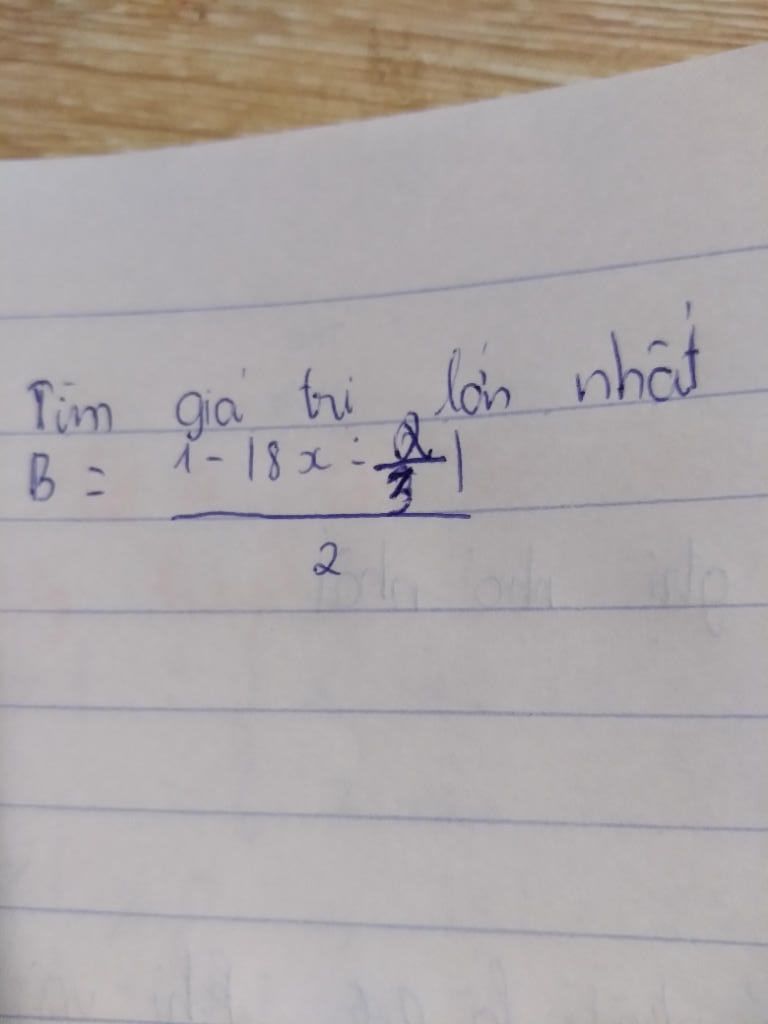 Tìm giá trị lớn nhất
B = \frac{1 - |8x - \frac{2}{3}|}{2}